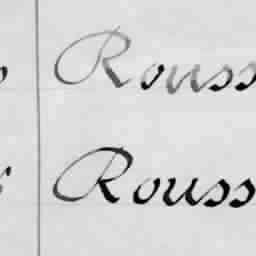 Rouss
Rouss